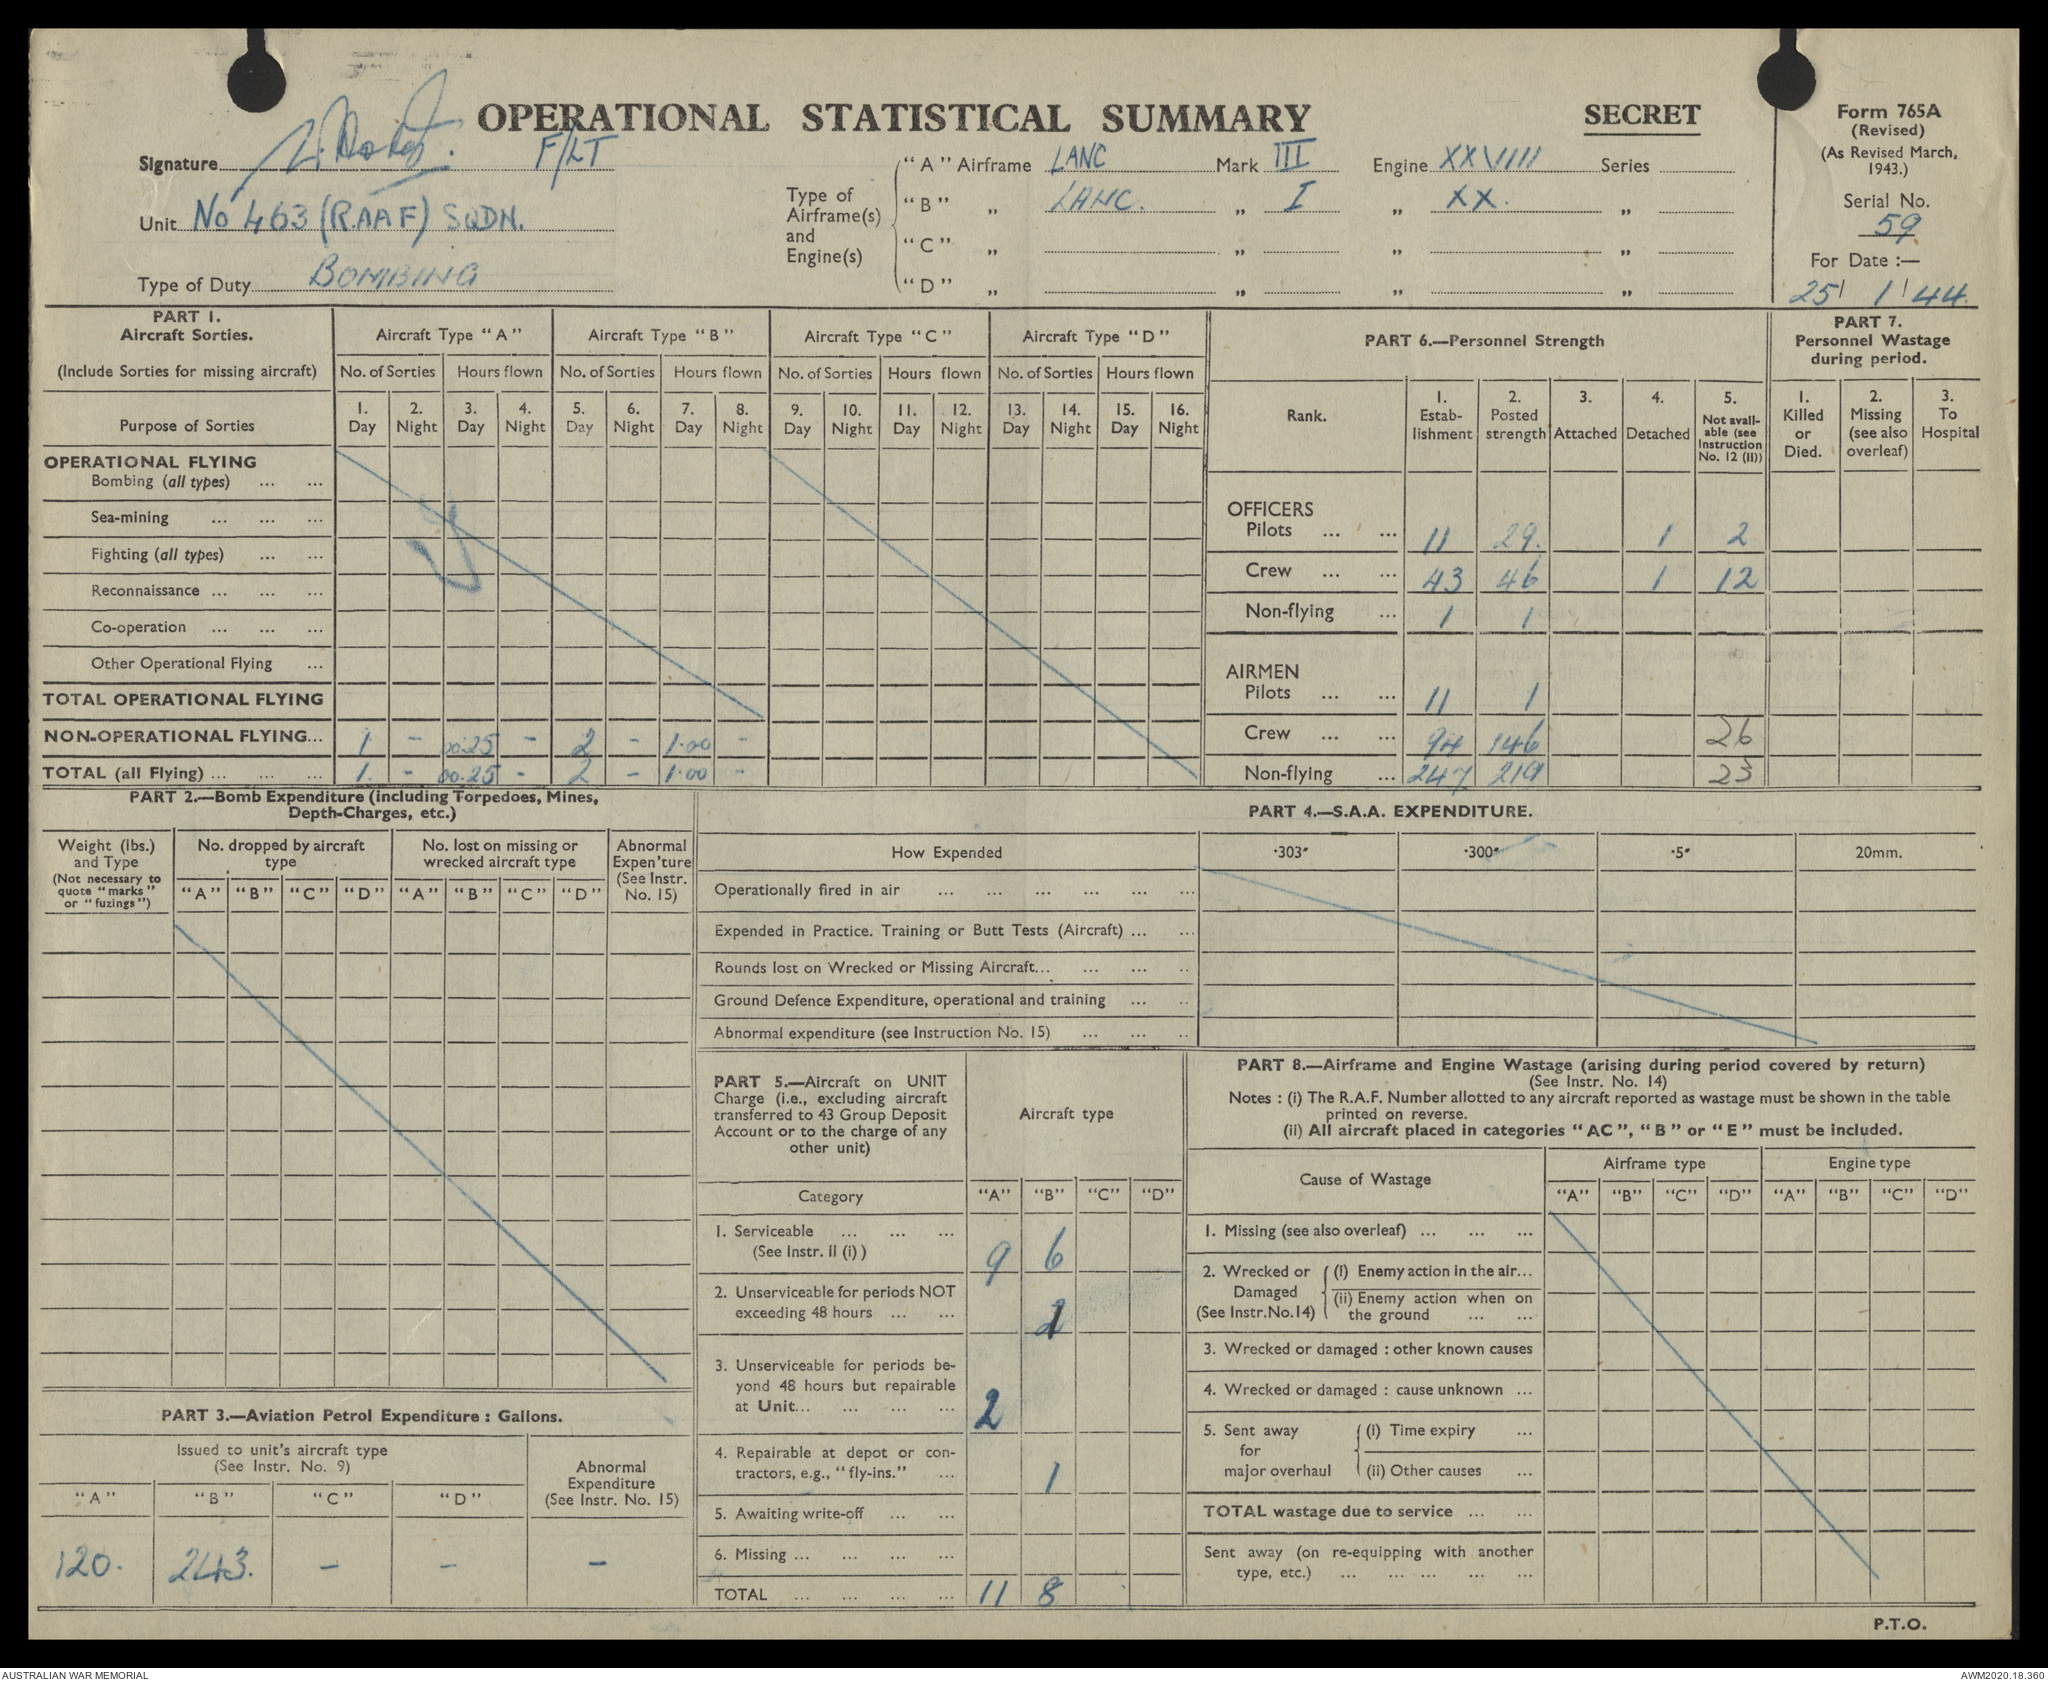 OPERATIONAL STATISTICAL SUMMARY
SECRET
Form 765A
(Revised)
(As Revised March,
1943.)
Serial No.
59
For Date :—
25 / 1 / 44.
Signature F/LT
Unit No 463 (R.A.A.F) SQDN.
Type of Duty BOMBING
Type of
Airframe(s)
and
Engine(s)
"A" Airframe LANC Mark III Engine XXVIII Series
"B" „ LANC. „ I „ XX. „
"C" „ „ „ „
"D" „ „ „ „
PART 1.
Aircraft Sorties.
(Include Sorties for missing aircraft)
Aircraft Type "A" Aircraft Type "B" Aircraft Type "C" Aircraft Type "D"
No. of Sorties Hours flown No. of Sorties Hours flown No. of Sorties Hours flown No. of Sorties Hours flown
Purpose of Sorties
1. Day 2. Night 3. Day 4. Night 5. Day 6. Night 7. Day 8. Night 9. Day 10. Night 11. Day 12. Night 13. Day 14. Night 15. Day 16. Night
OPERATIONAL FLYING
Bombing (all types) ... ...
Sea-mining ... ... ...
Fighting (all types) ... ...
Reconnaissance ... ... ...
Co-operation ... ... ...
Other Operational Flying ...
TOTAL OPERATIONAL FLYING
NON-OPERATIONAL FLYING... 1 - 00.25 - 2 - 1.00 -
TOTAL (all Flying) ... ... ... 1. - 00.25 - 2 - 1.00 -
PART 6.—Personnel Strength
Rank.
1. Establishment
2. Posted strength
3. Attached
4. Detached
5. Not available (see Instruction No. 12 (II))
OFFICERS
Pilots ... ... 11 29. 1 2
Crew ... ... 43 46 1 12
Non-flying ... 1 1
AIRMEN
Pilots ... ... 11 1
Crew ... ... 94 146 26
Non-flying ... 247 219 23
PART 7.
Personnel Wastage
during period.
1. Killed or Died.
2. Missing (see also overleaf)
3. To Hospital
PART 2.—Bomb Expenditure (including Torpedoes, Mines,
Depth-Charges, etc.)
Weight (lbs.)
and Type
(Not necessary to
quote "marks"
or "fuzings")
No. dropped by aircraft
type
No. lost on missing or
wrecked aircraft type
Abnormal
Expen'ture
(See Instr.
No. 15)
"A" "B" "C" "D" "A" "B" "C" "D"
PART 4.—S.A.A. EXPENDITURE.
How Expended ·303" ·300" ·5" 20mm.
Operationally fired in air ... ... ... ... ... ...
Expended in Practice. Training or Butt Tests (Aircraft) ... ...
Rounds lost on Wrecked or Missing Aircraft... ... ... ..
Ground Defence Expenditure, operational and training ... ..
Abnormal expenditure (see Instruction No. 15) ... ... ..
PART 3.—Aviation Petrol Expenditure : Gallons.
Issued to unit's aircraft type
(See Instr. No. 9)
Abnormal
Expenditure
(See Instr. No. 15)
"A" "B" "C" "D"
120. 243. - - -
PART 5.—Aircraft on UNIT
Charge (i.e., excluding aircraft
transferred to 43 Group Deposit
Account or to the charge of any
other unit)
Aircraft type
Category "A" "B" "C" "D"
1. Serviceable ... ... ...
(See Instr. II (i) ) 9 6
2. Unserviceable for periods NOT
exceeding 48 hours ... ... 1
3. Unserviceable for periods be-
yond 48 hours but repairable
at Unit... ... ... ... 2
4. Repairable at depot or con-
tractors, e.g., "fly-ins." ... 1
5. Awaiting write-off ... ...
6. Missing ... ... ... ...
TOTAL ... ... ... ... 11 8
PART 8.—Airframe and Engine Wastage (arising during period covered by return)
(See Instr. No. 14)
Notes : (i) The R.A.F. Number allotted to any aircraft reported as wastage must be shown in the table
printed on reverse.
(ii) All aircraft placed in categories "AC", "B" or "E" must be included.
Cause of Wastage
Airframe type Engine type
"A" "B" "C" "D" "A" "B" "C" "D"
1. Missing (see also overleaf) ... ... ...
2. Wrecked or
Damaged
(See Instr.No.14)
(i) Enemy action in the air...
(ii) Enemy action when on
the ground ... ...
3. Wrecked or damaged : other known causes
4. Wrecked or damaged : cause unknown ...
5. Sent away
for
major overhaul
(i) Time expiry ...
(ii) Other causes ...
TOTAL wastage due to service ... ...
Sent away (on re-equipping with another
type, etc.) ... ... ... ... ...
P.T.O.
AUSTRALIAN WAR MEMORIAL
AWM2020.18.360